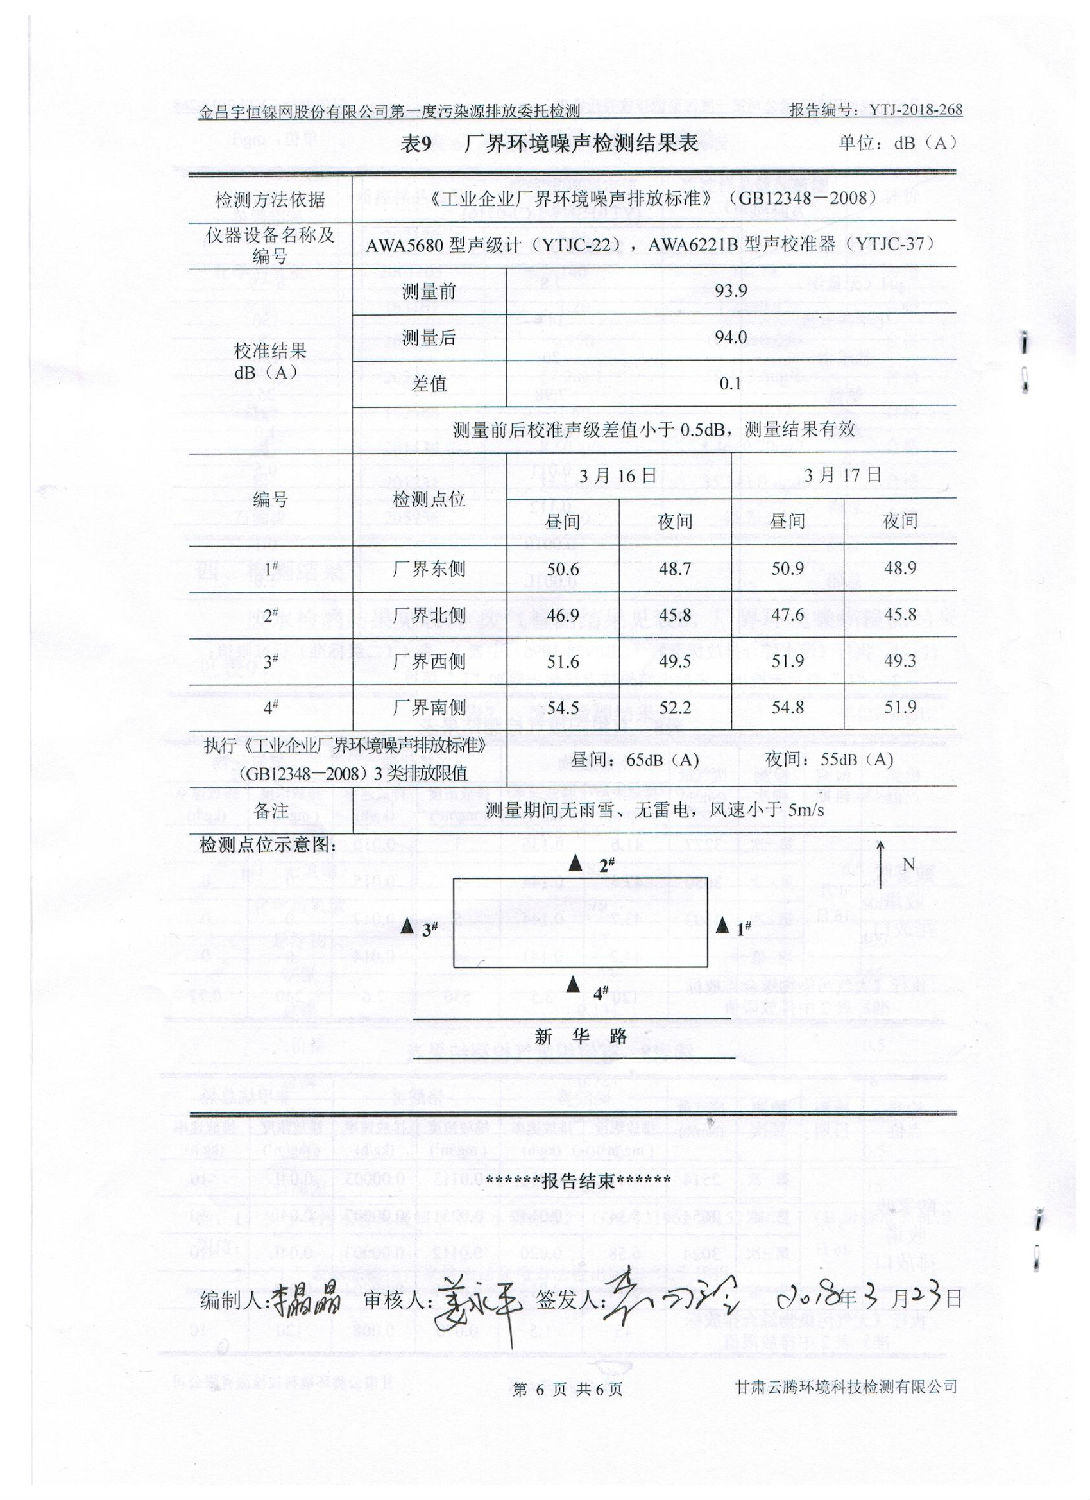 金昌宇恒镍网股份有限公司第一度污染源排放委托检测 报告编号：YTJ-2018-268
表9 厂界环境噪声检测结果表 单位：dB（A）
检测方法依据 《工业企业厂界环境噪声排放标准》（GB12348－2008）
仪器设备名称及编号 AWA5680 型声级计（YTJC-22），AWA6221B 型声校准器（YTJC-37）
校准结果 dB（A） 测量前 93.9
测量后 94.0
差值 0.1
测量前后校准声级差值小于 0.5dB，测量结果有效
编号 检测点位 3 月 16 日 3 月 17 日
昼间 夜间 昼间 夜间
1# 厂界东侧 50.6 48.7 50.9 48.9
2# 厂界北侧 46.9 45.8 47.6 45.8
3# 厂界西侧 51.6 49.5 51.9 49.3
4# 厂界南侧 54.5 52.2 54.8 51.9
执行《工业企业厂界环境噪声排放标准》
（GB12348－2008）3 类排放限值 昼间：65dB（A） 夜间：55dB（A）
备注 测量期间无雨雪、无雷电，风速小于 5m/s
检测点位示意图：
▲ 2# N
▲ 3# ▲ 1#
▲ 4#
新 华 路
******报告结束******
编制人：李晶晶 审核人：姜永平 签发人： 2018年 3 月23日
第 6 页 共 6 页 甘肃云腾环境科技检测有限公司